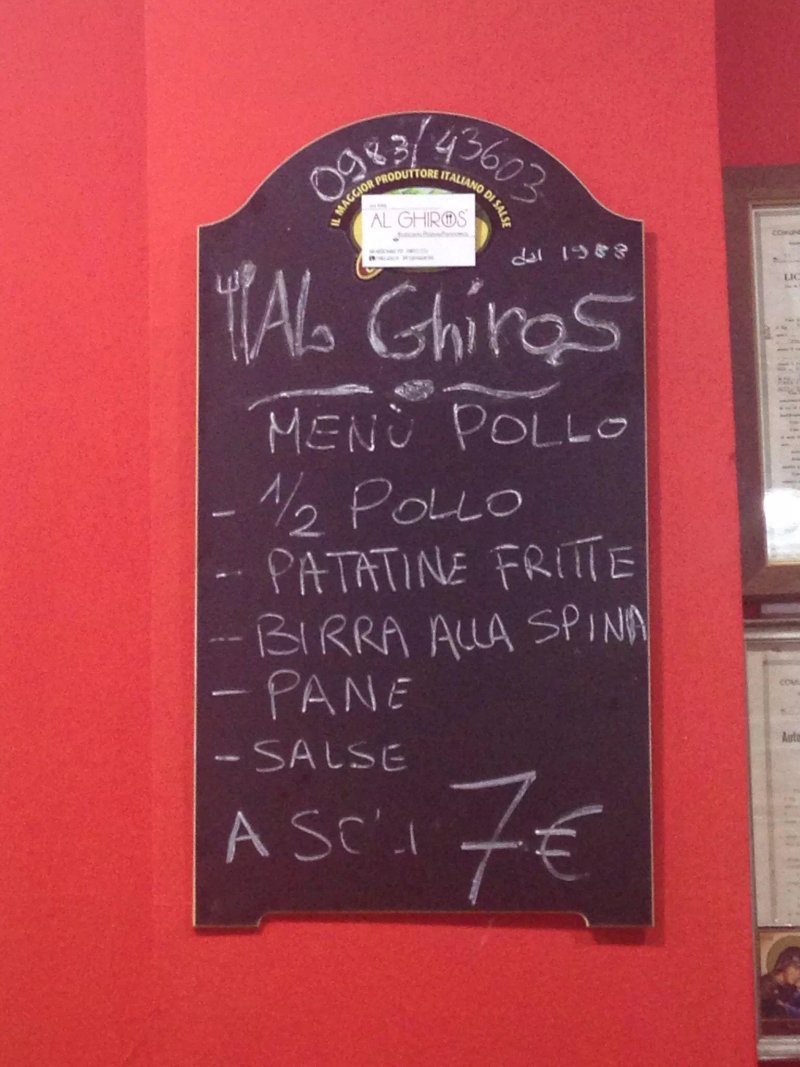 0983/43603
IL MAGGIOR PRODUTTORE ITALIANO DI SALSE
AL GHIROS
dal 1988
AL GhiroS
MENÙ POLLO
- 1/2 POLLO
- PATATINE FRITTE
- BIRRA ALLA SPINA
- PANE
- SALSE
A SOLI 7€
COMUN
LIC
COMU
Auto